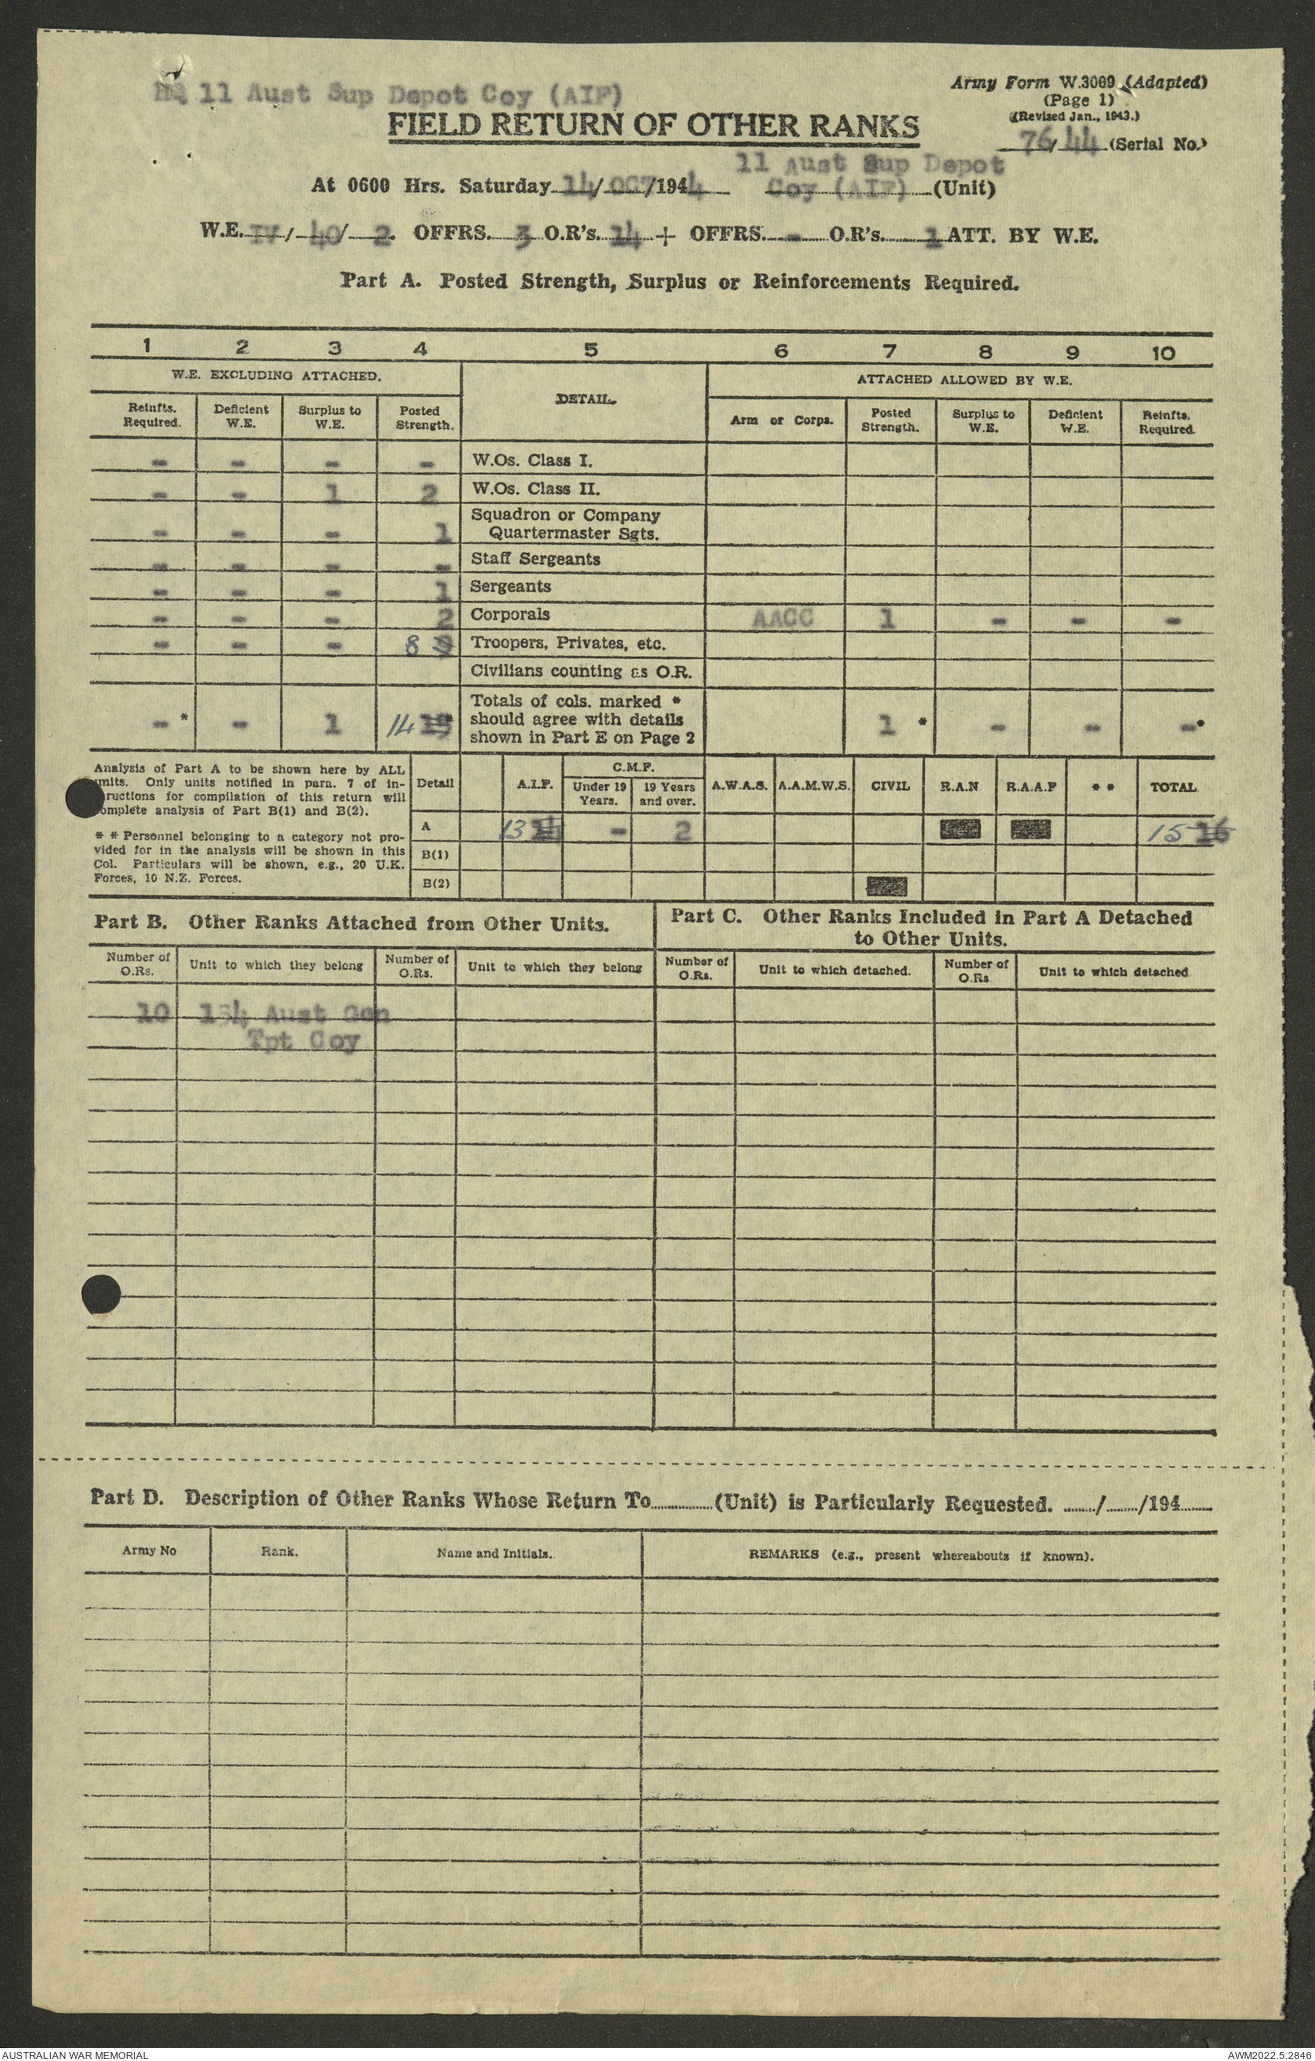 HQ 11 Aust Sup Depot Coy (AIF)
Army Form W.3009 (Adapted)
(Page 1)
(Revised Jan., 1943.)
FIELD RETURN OF OTHER RANKS
76/44 (Serial No.)
11 Aust Sup Depot
At 0600 Hrs. Saturday 14/OCT/1944 Coy (AIF) (Unit)
W.E. IV / 40/ 2. OFFRS. 3 O.R's. 14 + OFFRS. - O.R's. 1 ATT. BY W.E.
Part A. Posted Strength, Surplus or Reinforcements Required.
1 2 3 4 5 6 7 8 9 10
W.E. EXCLUDING ATTACHED. DETAIL. ATTACHED ALLOWED BY W.E.
Reinfts. Required. Deficient W.E. Surplus to W.E. Posted Strength. Arm or Corps. Posted Strength. Surplus to W.E. Deficient W.E. Reinfts. Required.
- - - - W.Os. Class I.
- - 1 2 W.Os. Class II.
- - - 1 Squadron or Company Quartermaster Sgts.
- - - - Staff Sergeants
- - - 1 Sergeants
- - - 2 Corporals AACC 1 - - -
- - - 8 9 Troopers, Privates, etc.
Civilians counting as O.R.
-* - 1 14 15* Totals of cols. marked * should agree with details shown in Part E on Page 2 1 * - - -*
Analysis of Part A to be shown here by ALL
units. Only units notified in para. 7 of in-
structions for compilation of this return will
complete analysis of Part B(1) and B(2).
* * Personnel belonging to a category not pro-
vided for in the analysis will be shown in this
Col. Particulars will be shown, e.g., 20 U.K.
Forces, 10 N.Z. Forces.
Detail A.I.F. C.M.F. Under 19 Years. 19 Years and over. A.W.A.S. A.A.M.W.S. CIVIL R.A.N R.A.A.F * * TOTAL
A 13 14 - 2 15 16
B(1)
B(2)
Part B. Other Ranks Attached from Other Units.
Part C. Other Ranks Included in Part A Detached
to Other Units.
Number of O.Rs. Unit to which they belong Number of O.Rs. Unit to which they belong Number of O.Rs. Unit to which detached. Number of O.Rs Unit to which detached
10 154 Aust Gen
Tpt Coy
Part D. Description of Other Ranks Whose Return To............(Unit) is Particularly Requested. ......./......./194.......
Army No Rank. Name and Initials. REMARKS (e.g., present whereabouts if known).
AUSTRALIAN WAR MEMORIAL
AWM2022.5.2846